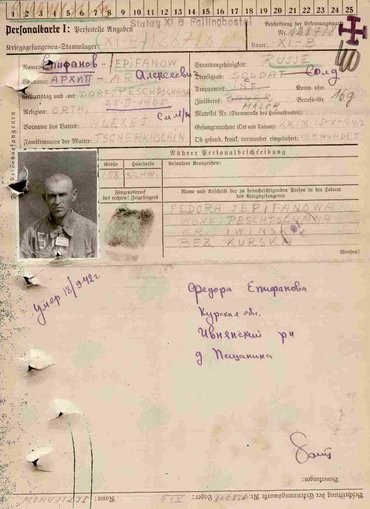 1 2 3 4 5 6 7 8 9 10 11 12 13 14 15 16 17 18 19 20 21 22 23 24 25
Stalag XI B Fallingbostel
Personalkarte I: Personelle Angaben
Kriegsgefangenen-Stammlager:
Beschriftung der Erkennungsmarke
Nr. 128718
Lager: XI-B
Name: Епифанов JEPIFANOW
Staatsangehörigkeit: RUSSE
Vorname: АРХИП Алексеевич
Dienstgrad: SOLDAT Солд
Geburtstag und -ort: DORF PESCHTSCHANA
Truppenteil: INF.
25 II 1905
MALER Berufs-Gr. 169
Religion: ORTH.
Vorname des Vaters: ALEKEJ
Gefangennahme (Ort und Datum): KRIM
Familienname der Mutter:
Ob gesund, krank, verwundet eingeliefert: VERWUNDET
Nähere Personalbeschreibung
Größe
Haarfarbe
Besondere Kennzeichen:
SCHW.
Fingerabdruck
des rechten Zeigefingers
Name und Anschrift der zu benachrichtigenden Person in der Heimat
des Kriegsgefangenen
FEDORA JEPIFANOWA
PESCHTSCHANA
KR. IWINSK
BEZ KURSKA
Wenden!
умер 18/9 42г
Федора Епифанова
Курская обл.
Ивнянский рн
д. Пищанина
Bemerkungen:
Beschriftung der Erkennungsmarke Nr. Lager: Name: